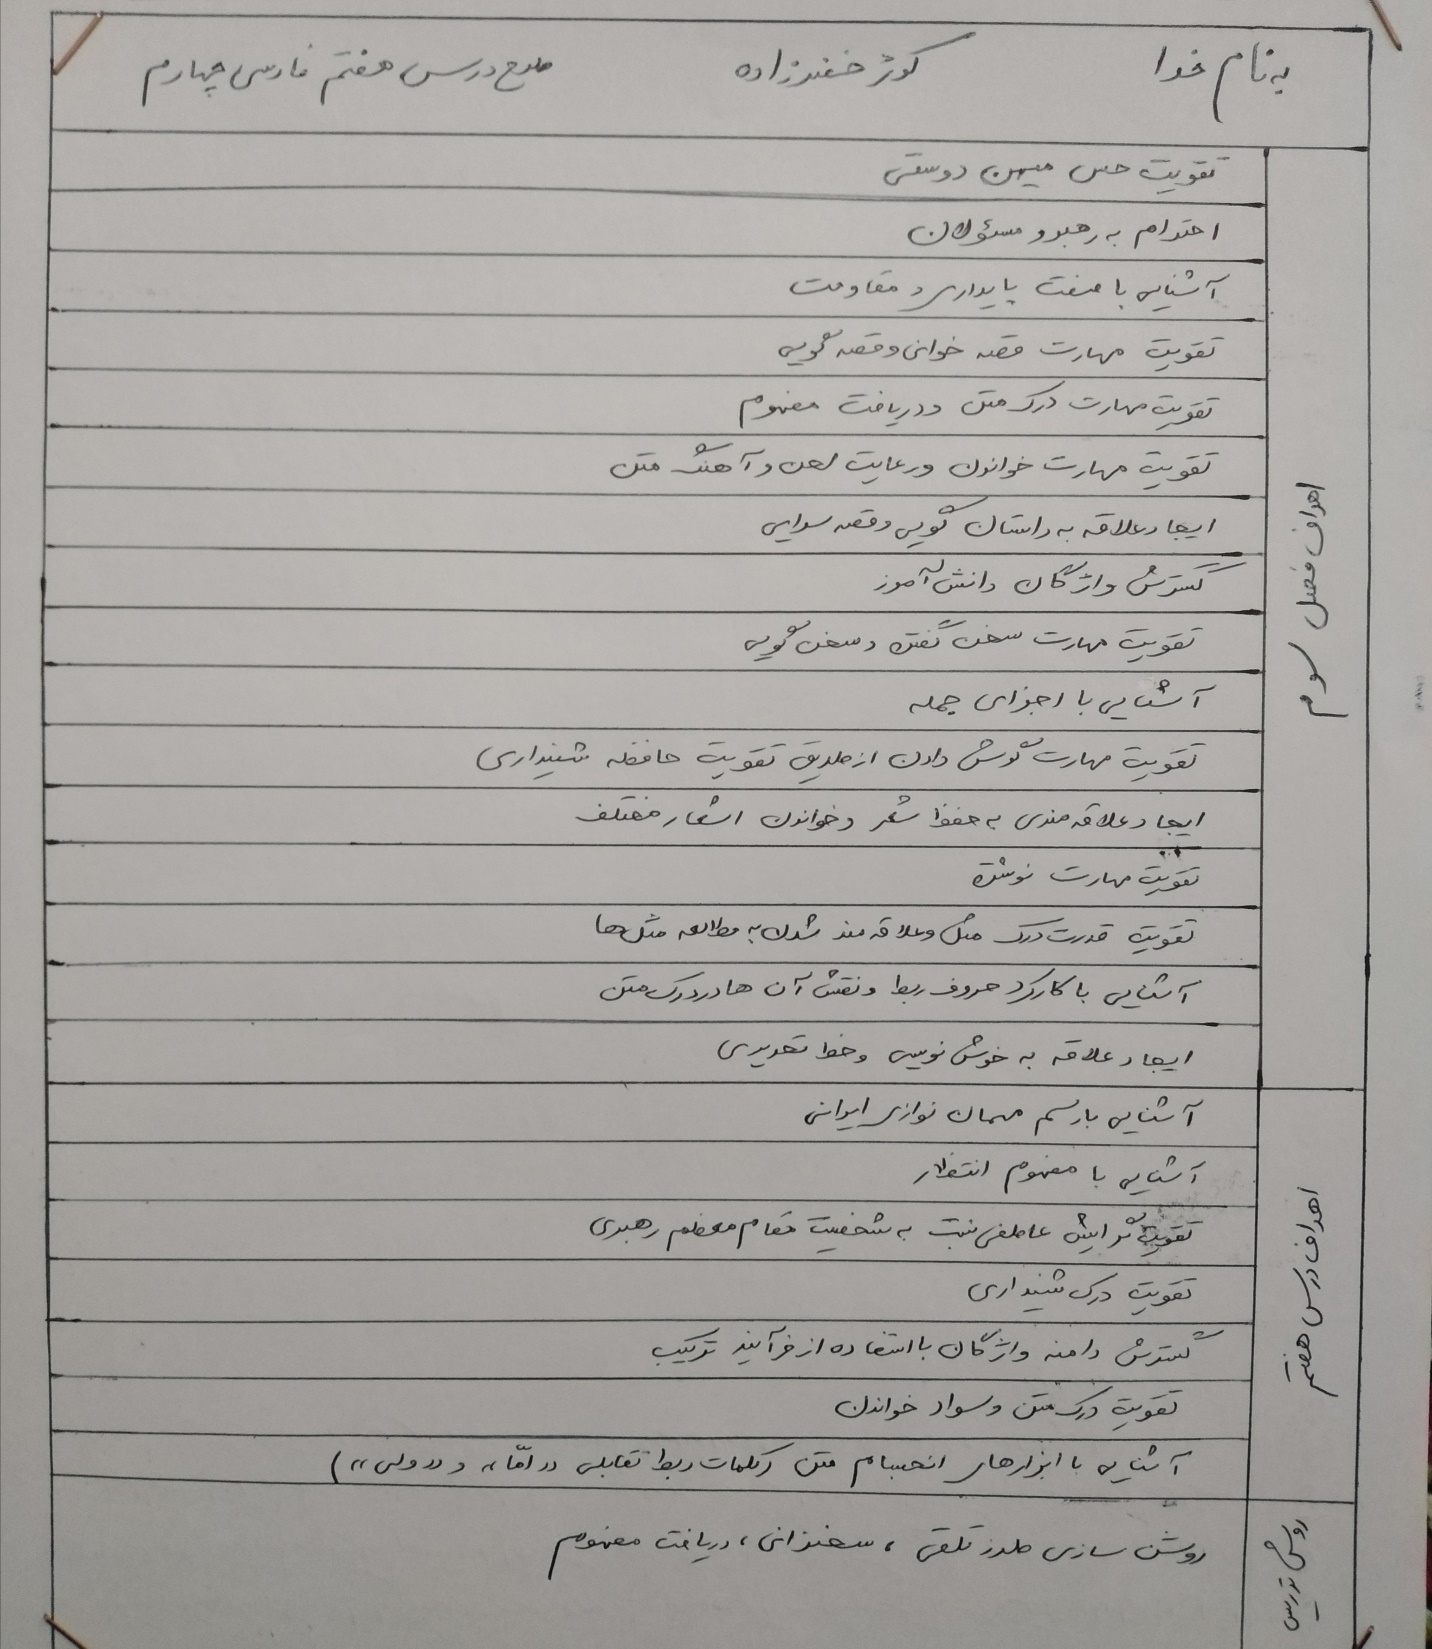 به نام خدا
کوثر خضرزاده
طرح درس هفتم فارسی چهارم
اهداف فصل سوم
تقویت حس میهن دوستی
احترام به رهبر و مسئولان
آشنایی با صفت پایداری و مقاومت
تقویت مهارت قصه خوانی و قصه گویی
تقویت مهارت درک متن و دریافت مفهوم
تقویت مهارت خواندن و رعایت لحن و آهنگ متن
ایجاد علاقه به داستان گویی و قصه سرایی
گسترش واژگان دانش آموز
تقویت مهارت سخن گفتن و سخن گویی
آشنایی با اجزای جمله
تقویت مهارت گوش دادن از طریق تقویت حافظه شنیداری
ایجاد علاقه مندی به حفظ شعر و خواندن اشعار مختلف
تقویت مهارت نوشتن
تقویت قدرت درک مثل و علاقه مند شدن به مطالعه مثل ها
آشنایی با کارکرد حروف ربط و نقش آن ها در درک متن
ایجاد علاقه به خوش نویسی و خط تحریری
اهداف درس هفتم
آشنایی با رسم مهمان نوازی ایرانی
آشنایی با مفهوم انتظار
تقویت گرایش عاطفی نسبت به شخصیت مقام معظم رهبری
تقویت درک شنیداری
گسترش دامنه واژگان با استفاده از فرآیند ترکیب
تقویت درک متن و سواد خواندن
آشنایی با ابزارهای انسجام متن (کلمات ربط تقابلی «امّا» و «ولی»)
روش تدریس
روشن سازی طرز تلقی ، سخنرانی ، دریافت مفهوم